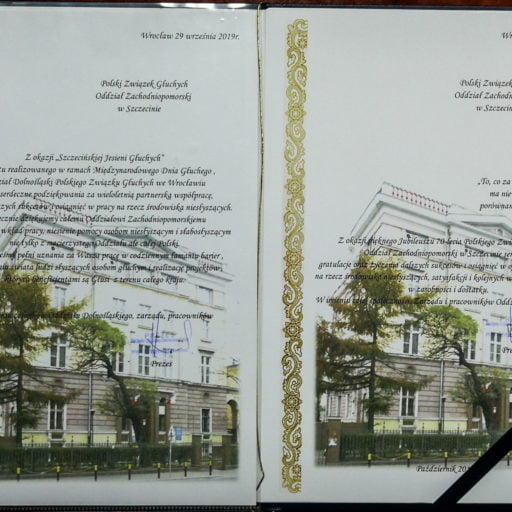 Wrocław 29 września 2019r.
Polski Związek Głuchych
Oddział Zachodniopomorski
w Szczecinie
Z okazji „Szczecińskiej Jesieni Głuchych"
tu realizowanego w ramach Międzynarodowego Dnia Głuchego ,
ział Dolnośląski Polskiego Związku Głuchych we Wrocławiu
serdeczne podziękowania za wieloletnią partnerską współpracę,
szych sukcesów i osiągnięć w pracy na rzecz środowiska niesłyszących.
ecznie dziękujemy całemu Oddziałowi Zachodniopomorskiemu
wkład pracy, niesienie pomocy osobom niesłyszącym i słabosłyszącym
nie tylko z macierzystego Oddziału ale całej Polski.
pełni uznania za Waszą pracę w codziennym łamaniu barier ,
świata ludzi słyszących osobom głuchym i realizację projektów,
których beneficjentami są Głusi z terenu całego kraju.
Oddziału Dolnośląskiego, zarządu, pracowników
Prezes
Wro
Polski Zw
Oddział Zach
w Szcz
„To, co za
ma nie
porówna
Z okazji pięknego Jubileuszu 70-lecia Polskiego Zwią
w Szczecinie
gratulacje oraz życzenia dalszych sukcesów i osiągnięć w
na rzecz środowiska niesłyszących, satysfakcji i kolejnych
w zasobności i dostatku.
W imieniu Zarządu i pracowników Oddzi
Preze
Październik 20